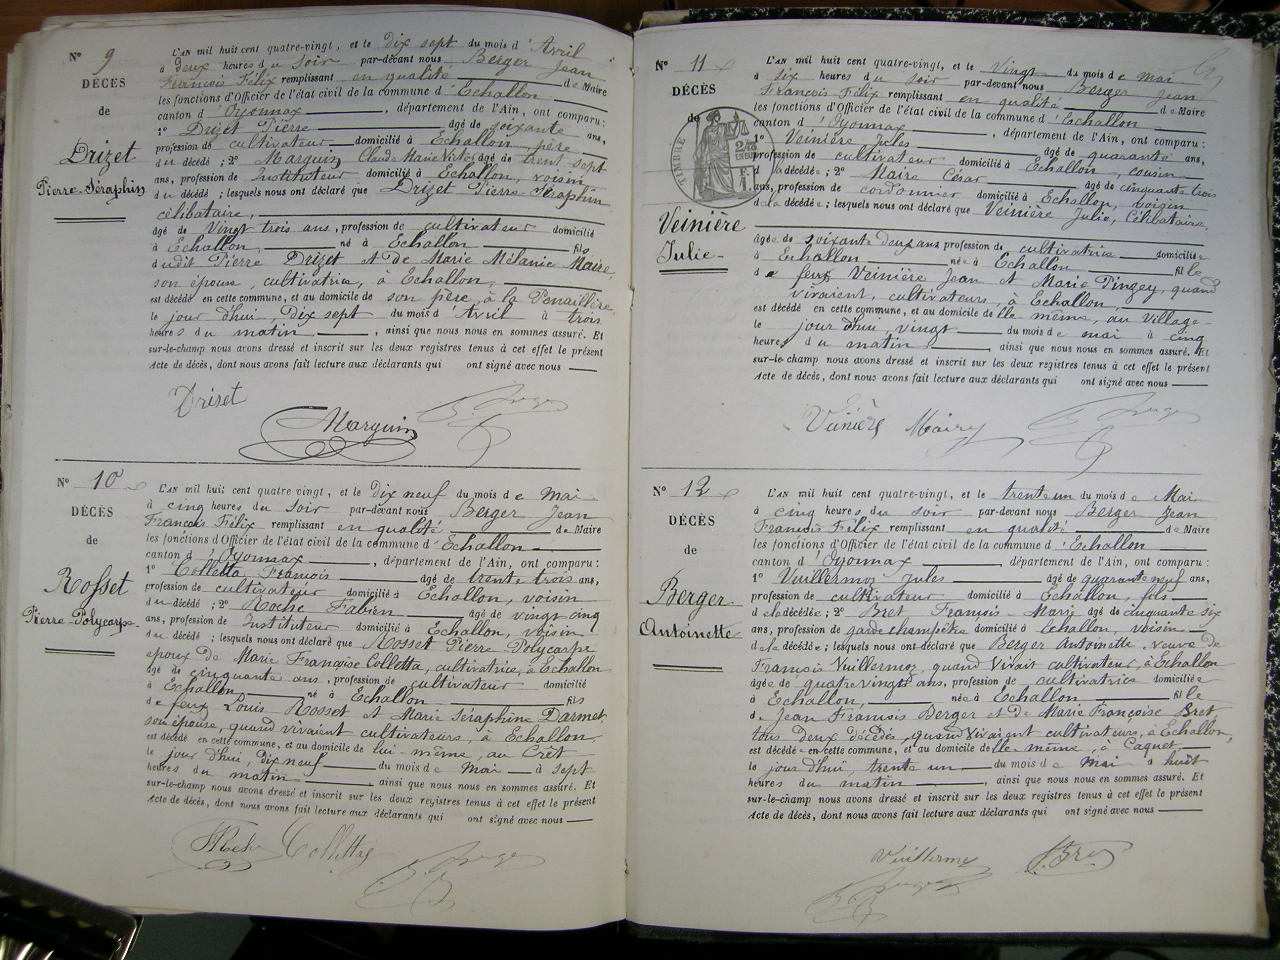 Nº 9
DÉCÈS
de
Drizet
Pierre-Séraphin
L'AN mil huit cent quatre-vingt, et le dix sept du mois d'Avril
à deux heures du soir par-devant nous Berger Jean
François Félix remplissant en qualité de Maire
les fonctions d'Officier de l'état civil de la commune d'Echallon
canton d'Oyonnax, département de l'Ain, ont comparu:
1º Drizet Pierre âgé de soixante ans,
profession de cultivateur domicilié à Echallon, père
du décédé; 2º Marguin, Claude Marie Victor âgé de trent sept
ans, profession de Instituteur domicilié à Echallon, voisin
du décédé; lesquels nous ont déclaré que Drizet Pierre Séraphin
célibataire,
âgé de Vingt trois ans, profession de cultivateur domicilié
à Echallon né à Echallon fils
dudit Pierre Drizet et de Marie Mélanie Maire
son épouse, cultivatrice, à Echallon,
est décédé en cette commune, et au domicile de son père, à la
le jour d'hui, Dix sept du mois d'Avril à trois
heures du matin, ainsi que nous nous en sommes assuré. Et
sur-le-champ nous avons dressé et inscrit sur les deux registres tenus à cet effet le présent
Acte de décès, dont nous avons fait lecture aux déclarants qui ont signé avec nous
Drizet
Marguin
Nº 10
DÉCÈS
de
Rosset
Pierre-Polycarpe
L'AN mil huit cent quatre-vingt, et le dix neuf du mois de Mai
à cinq heures du soir par-devant nous Berger Jean
François Félix remplissant en qualité de Maire
les fonctions d'Officier de l'état civil de la commune d'Echallon
canton d'Oyonnax, département de l'Ain, ont comparu:
1º Colletta François âgé de trente trois ans,
profession de cultivateur domicilié à Echallon, voisin
du décédé; 2º Roche Fabien âgé de vingt cinq
ans, profession de Instituteur domicilié à Echallon, voisin
du décédé; lesquels nous ont déclaré que Rosset Pierre Polycarpe
époux de Marie Françoise Colletta, cultivatrice, à Echallon
âgé de cinquante ans, profession de cultivateur domicilié
à Echallon né à Echallon fils
de feux Louis Rosset et Marie Séraphine Darmet
son épouse, quand vivaient cultivateurs, à Echallon
est décédé en cette commune, et au domicile de lui-même, au Crêt
le jour d'hui, dix neuf du mois de Mai à sept
heures du matin, ainsi que nous nous en sommes assuré. Et
sur-le-champ nous avons dressé et inscrit sur les deux registres tenus à cet effet le présent
Acte de décès, dont nous avons fait lecture aux déclarants qui ont signé avec nous
Colletta
Nº 11
DÉCÈS
de
TIMBRE
Veinière
Julie
L'AN mil huit cent quatre-vingt, et le Vingt du mois de mai
à six heures du soir par-devant nous Berger Jean
François Félix remplissant en qualité de Maire
les fonctions d'Officier de l'état civil de la commune d'Echallon
canton d'Oyonnax, département de l'Ain, ont comparu:
1º Veinière Jules âgé de quarante ans,
profession de cultivateur domicilié à Echallon, cousin
d la décédée; 2º Maire César âgé de cinquante trois
ans, profession de cordonnier domicilié à Echallon, voisin
de la décédée; lesquels nous ont déclaré que Veinière Julie, Célibataire,
âgée de soixante deux ans profession de cultivatrice domiciliée
à Echallon née à Echallon fille
de feux Veinière Jean et Marie Pingey, quand
vivaient, cultivateurs, à Echallon
est décédée en cette commune, et au domicile d'elle même, au Village
le jour d'hui, vingt du mois de mai à cinq
heures du matin, ainsi que nous nous en sommes assuré. Et
sur-le-champ nous avons dressé et inscrit sur les deux registres tenus à cet effet le présent
Acte de décès, dont nous avons fait lecture aux déclarants qui ont signé avec nous
Veinière
Nº 12
DÉCÈS
de
Berger
Antoinette
L'AN mil huit cent quatre-vingt, et le trente un du mois de Mai
à cinq heures du soir par-devant nous Berger Jean
François Félix remplissant en qualité de Maire
les fonctions d'Officier de l'état civil de la commune d'Echallon
canton d'Oyonnax, département de l'Ain, ont comparu:
1º Vuillermoz Jules âgé de quarante neuf ans,
profession de cultivateur domicilié à Echallon, fils
d e la décédée; 2º Bret François-Marie âgé de cinquante six
ans, profession de garde champêtre domicilié à Echallon, voisin
de la décédée; lesquels nous ont déclaré que Berger Antoinette, veuve de
François Vuillermoz, quand Vivait cultivateur, à Echallon
âgée de quatre vingts ans, profession de cultivatrice domiciliée
à Echallon, née à Echallon fille
de Jean François Berger et de Marie Françoise Bret
tous deux décédés, quand Vivaient cultivateurs, à Echallon,
est décédée en cette commune, et au domicile d'elle même, à Caquet,
le jour d'hui, trente un du mois de mai à huit
heures du matin, ainsi que nous nous en sommes assuré. Et
sur-le-champ nous avons dressé et inscrit sur les deux registres tenus à cet effet le présent
Acte de décès, dont nous avons fait lecture aux déclarants qui ont signé avec nous
Vuillermoz
Bret